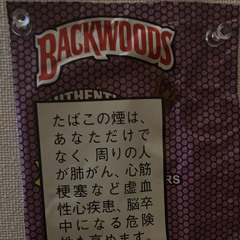 BACKWOODS
AUTHENTIC
たばこの煙は、
あなただけで
なく、周りの人
が肺がん、心筋
梗塞など虚血
性心疾患、脳卒
中になる危険
性も高めます